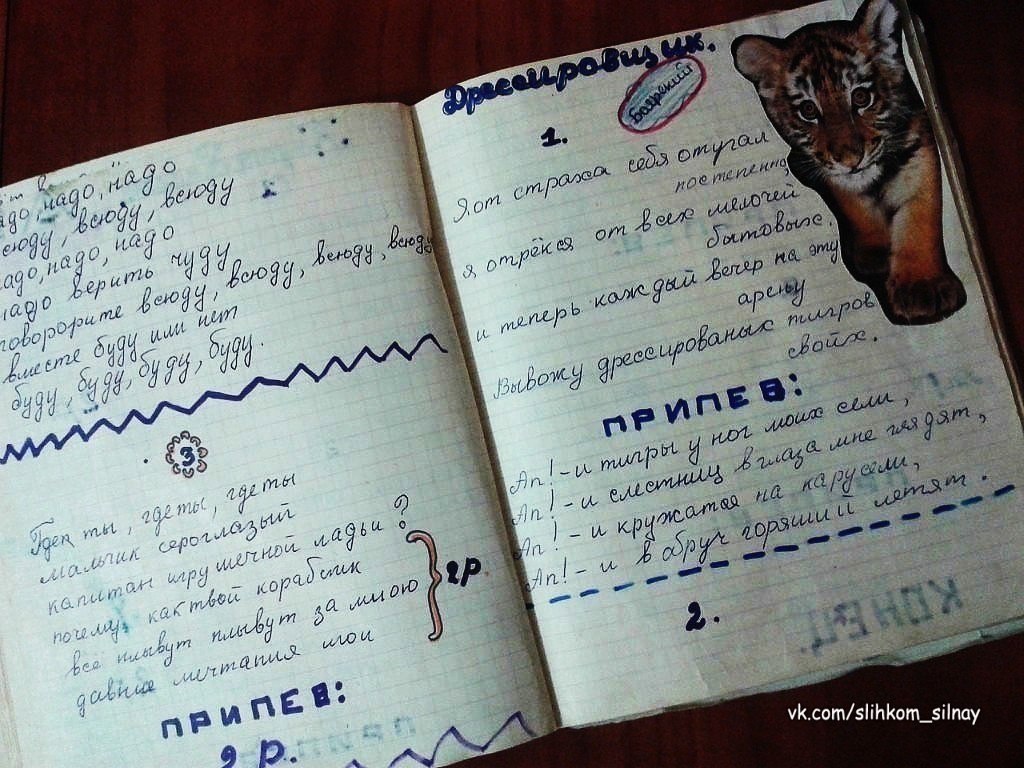 надо, надо, надо
всюду, всюду, всюду
надо, надо, надо
надо верить чуду
говорорите всюду, всюду, всюду, всюду
вместе буду или нет
буду, буду, буду, буду.
3
Где ты, где ты, где ты
мальчик сероглазый
капитан игрушечной ладьи?
почему, как твой кораблик
все плывут плывут за мною
давние мечтания мои
2р.
ПРИПЕВ:
2 р.
Дрессировщик.
Боярский
1.
Я от страха себя отугал
постепенно,
я отрёкся от всех мелочей
бытовых.
и теперь каждый вечер на эту
арену
Вывожу дрессированых тигров
свойх.
ПРИПЕВ:
Ап! - и тигры у ног моих сели,
Ап! - и слестниц в глаза мне глядят,
Ап! - и кружатся на карусели,
Ап! - и в обруч горяший летят.
2.
КОНЕЦ.
vk.com/slihkom_silnay